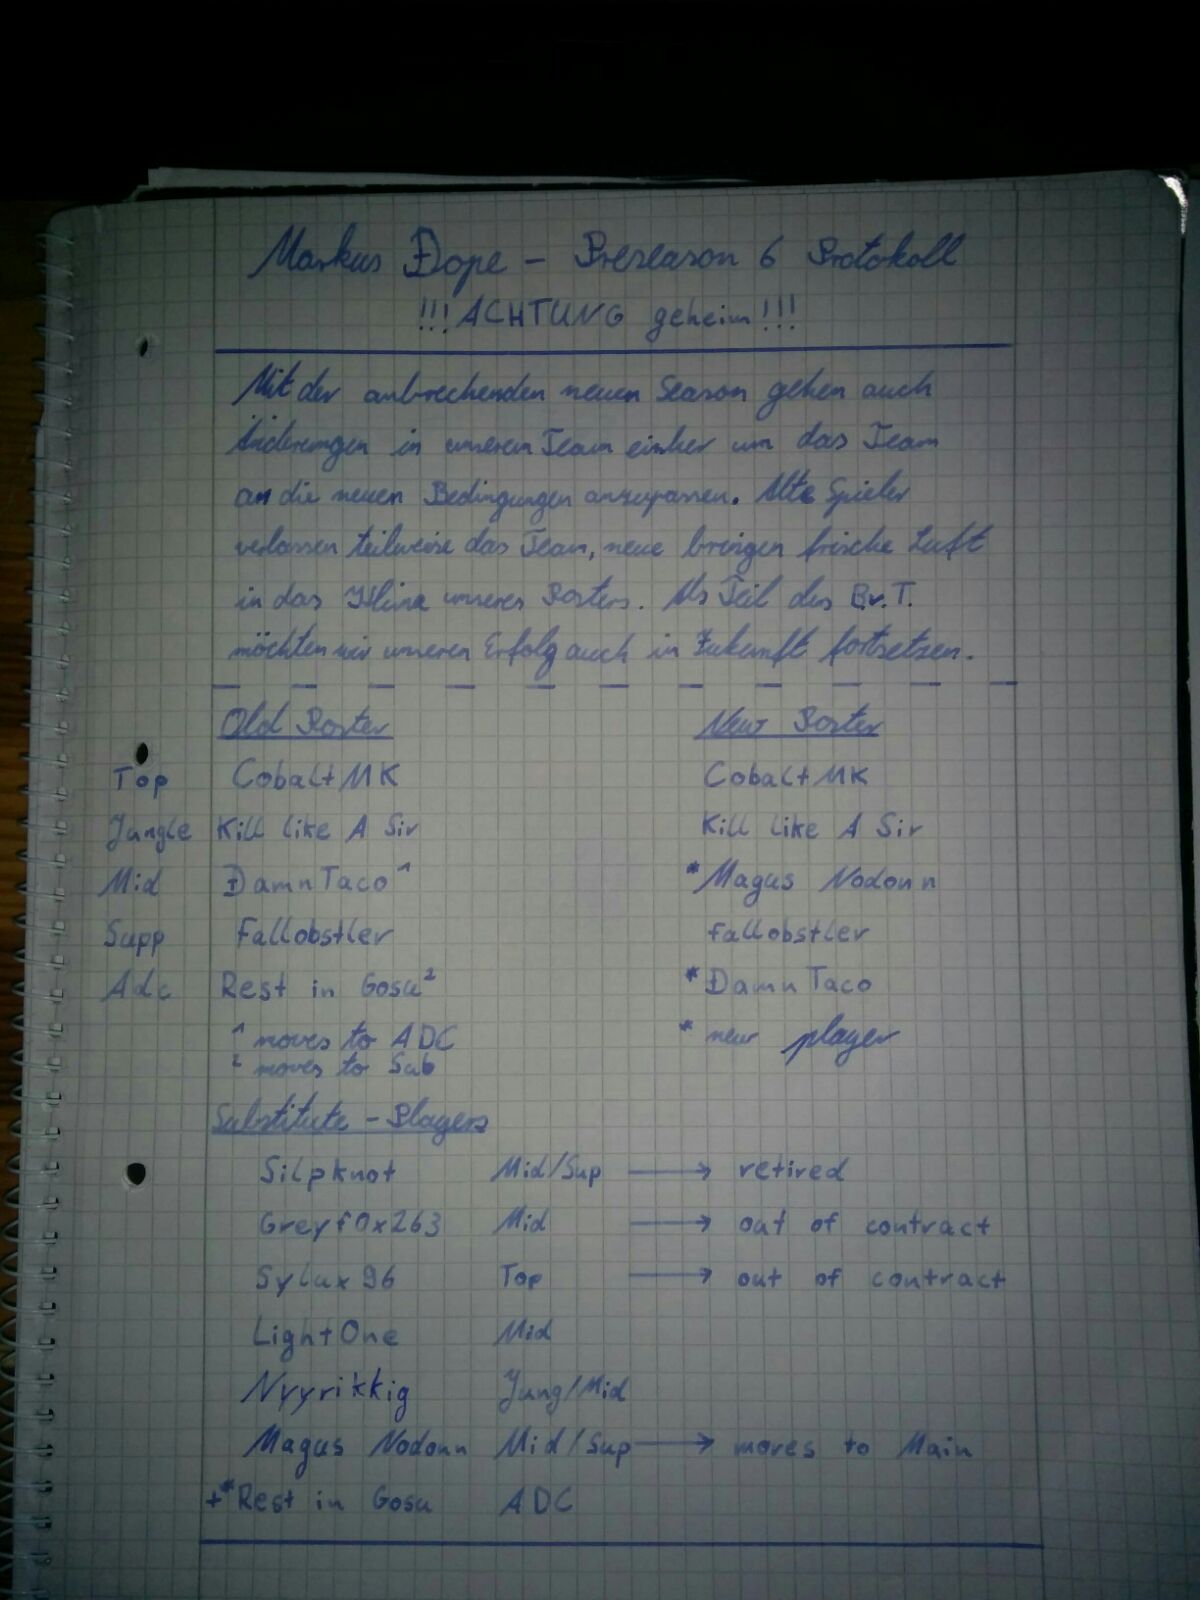 Markus Dope - Preseason 6 Protokoll
!!! ACHTUNG geheim!!!
Mit der anbrechenden neuen Season gehen auch
Änderungen in unserem Team einher um das Team
an die neuen Bedingungen anzupassen. Alte Spieler
verlassen teilweise das Team, neue bringen frische Luft
in das Klima unseres Rosters. Als Teil des B.v.T.
möchten wir unseren Erfolg auch in Zukunft fortsetzen.
Old Roster New Roster
Top Cobalt MK Cobalt MK
Jungle Kill like A Sir Kill like A Sir
Mid DamnTaco ¹ * Magus Nodonn
Supp Fallobstler Fallobstler
Adc Rest in Gosu ² * DamnTaco
¹ moves to ADC * new player
² moves to Sub
Substitute - Players
Silpknot Mid/Sup → retired
Greyf0x263 Mid → out of contract
Sylux96 Top → out of contract
LightOne Mid
Nyyrikkig Jung/Mid
Magus Nodonn Mid/Sup → moves to Main
+* Rest in Gosu ADC